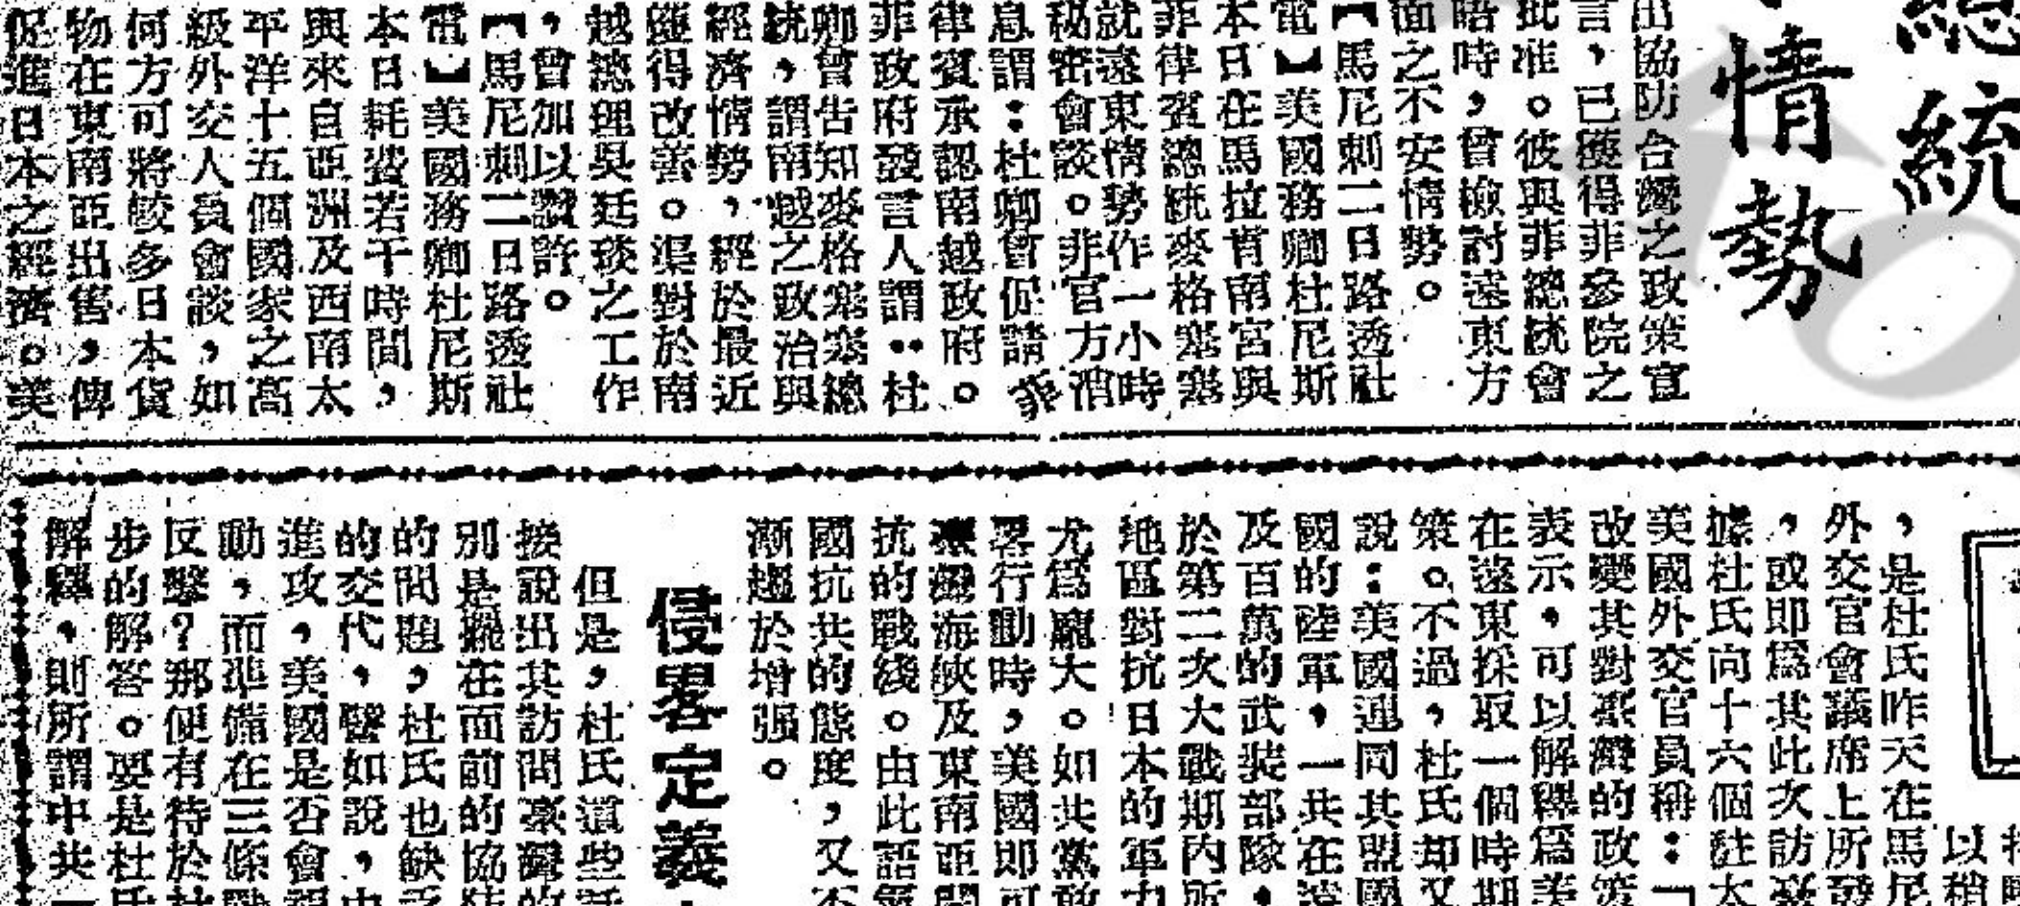 總統
情勢
出協防合灣之政策宣
言，已獲得菲參院之
批准。彼與菲總統會
晤時，曾檢討遠東方
面之不安情勢。
【馬尼剌二日路透社
電】美國務卿杜尼斯
本日在馬拉肯南宮與
菲律賓總統麥格塞塞
就遠東情勢作一小時
秘密會談。非官方消
息謂：杜卿曾促請菲
律賓承認南越政府。
菲政府發言人謂：杜
卿曾告知麥格塞塞總
統，謂南越之政治與
經濟情勢，經於最近
獲得改善。渠對於南
越總理吳廷琰之工作
，曾加以讚許。
【馬尼剌二日路透社
電】美國務卿杜尼斯
本日耗費若干時間，
與來自亞洲及西南太
平洋十五個國家之高
級外交人員會談，如
何方可將較多日本貨
物在東南亞出售，俾
促進日本之經濟。美
以稍
，是杜氏昨天在馬尼
外交官會議席上所發
，或即為其此次訪臺
據杜氏向十六個駐太
美國外交官員稱：「
改變其對臺灣的政策
表示，可以解釋為美
在遠東採取一個時期
策。不過，杜氏却又
說：美國連同其盟國
國的陸軍，一共在遠
及百萬的武裝部隊，
於第二次大戰期內所
地區對抗日本的軍力
尤為龐大。如共黨敢
畧行動時，美國即可
臺灣海峽及東南亞開
抗的戰綫。由此語氣
國抗共的態度，又不
漸趨於增强。
侵畧定義
但是，杜氏這些話
接說出其訪問臺灣的
別是擺在面前的協防
的問題，杜氏也缺乏
的交代，譬如說，中
進攻，美國是否會視
動，而準備在三條戰
反擊？那便有待於杜
步的解答。要是杜氏
解釋，則所謂中共一